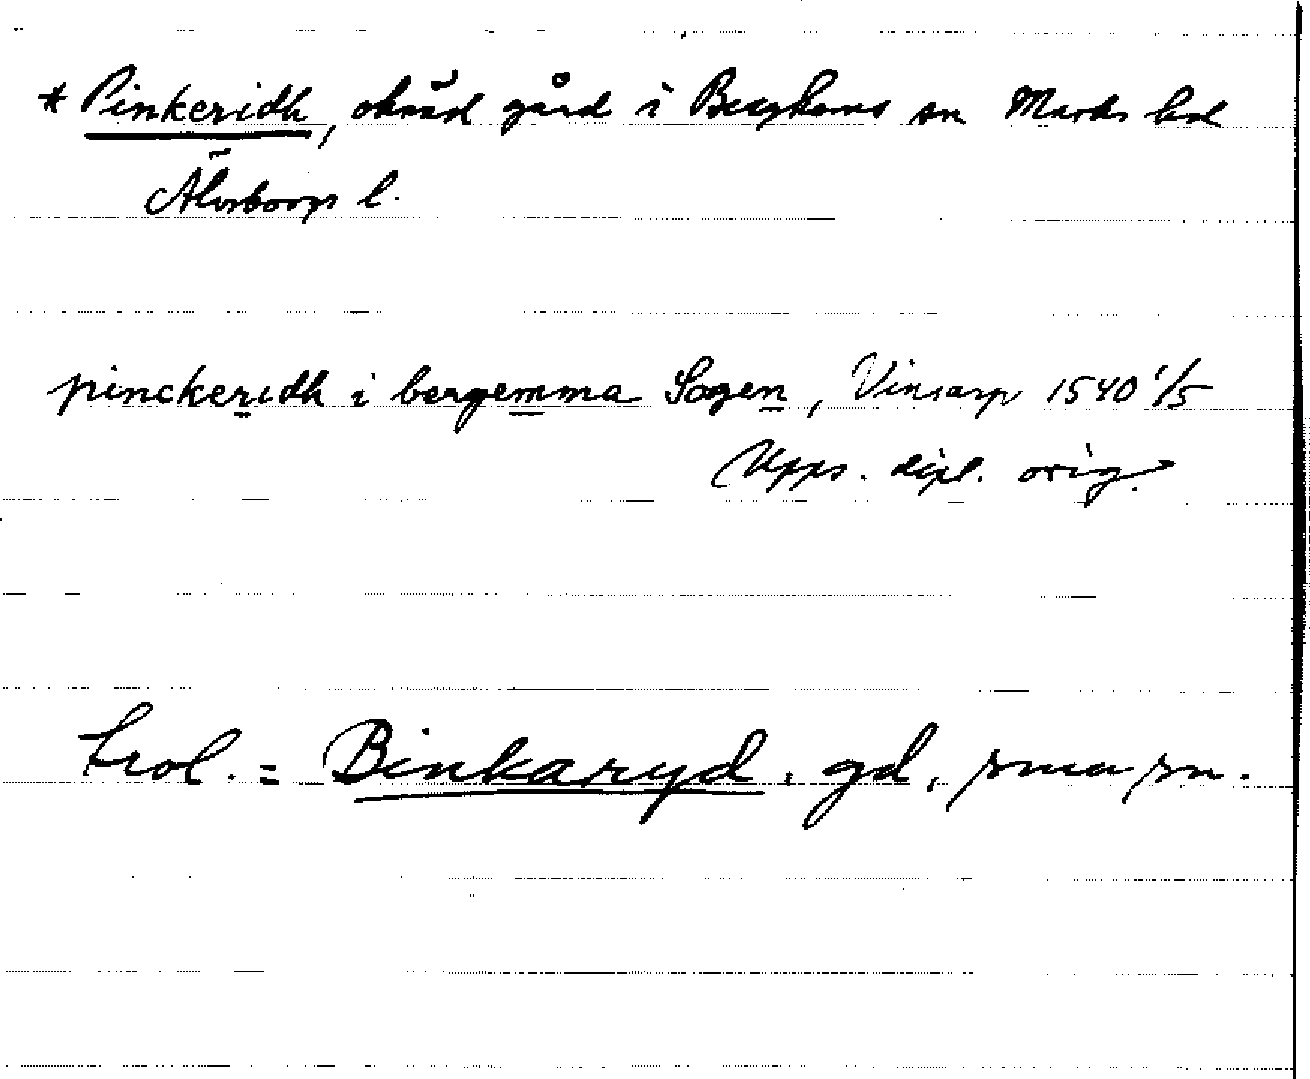 * Pinkeridh, okänd gård i Berghems sn Marks hd
Älvsborgs l.
pinckeridh i bergemma Sogen, Vinsarp 1540 1/5
Upps. dipl. orig.
trol. = Binkaryd, gd, sma sn.